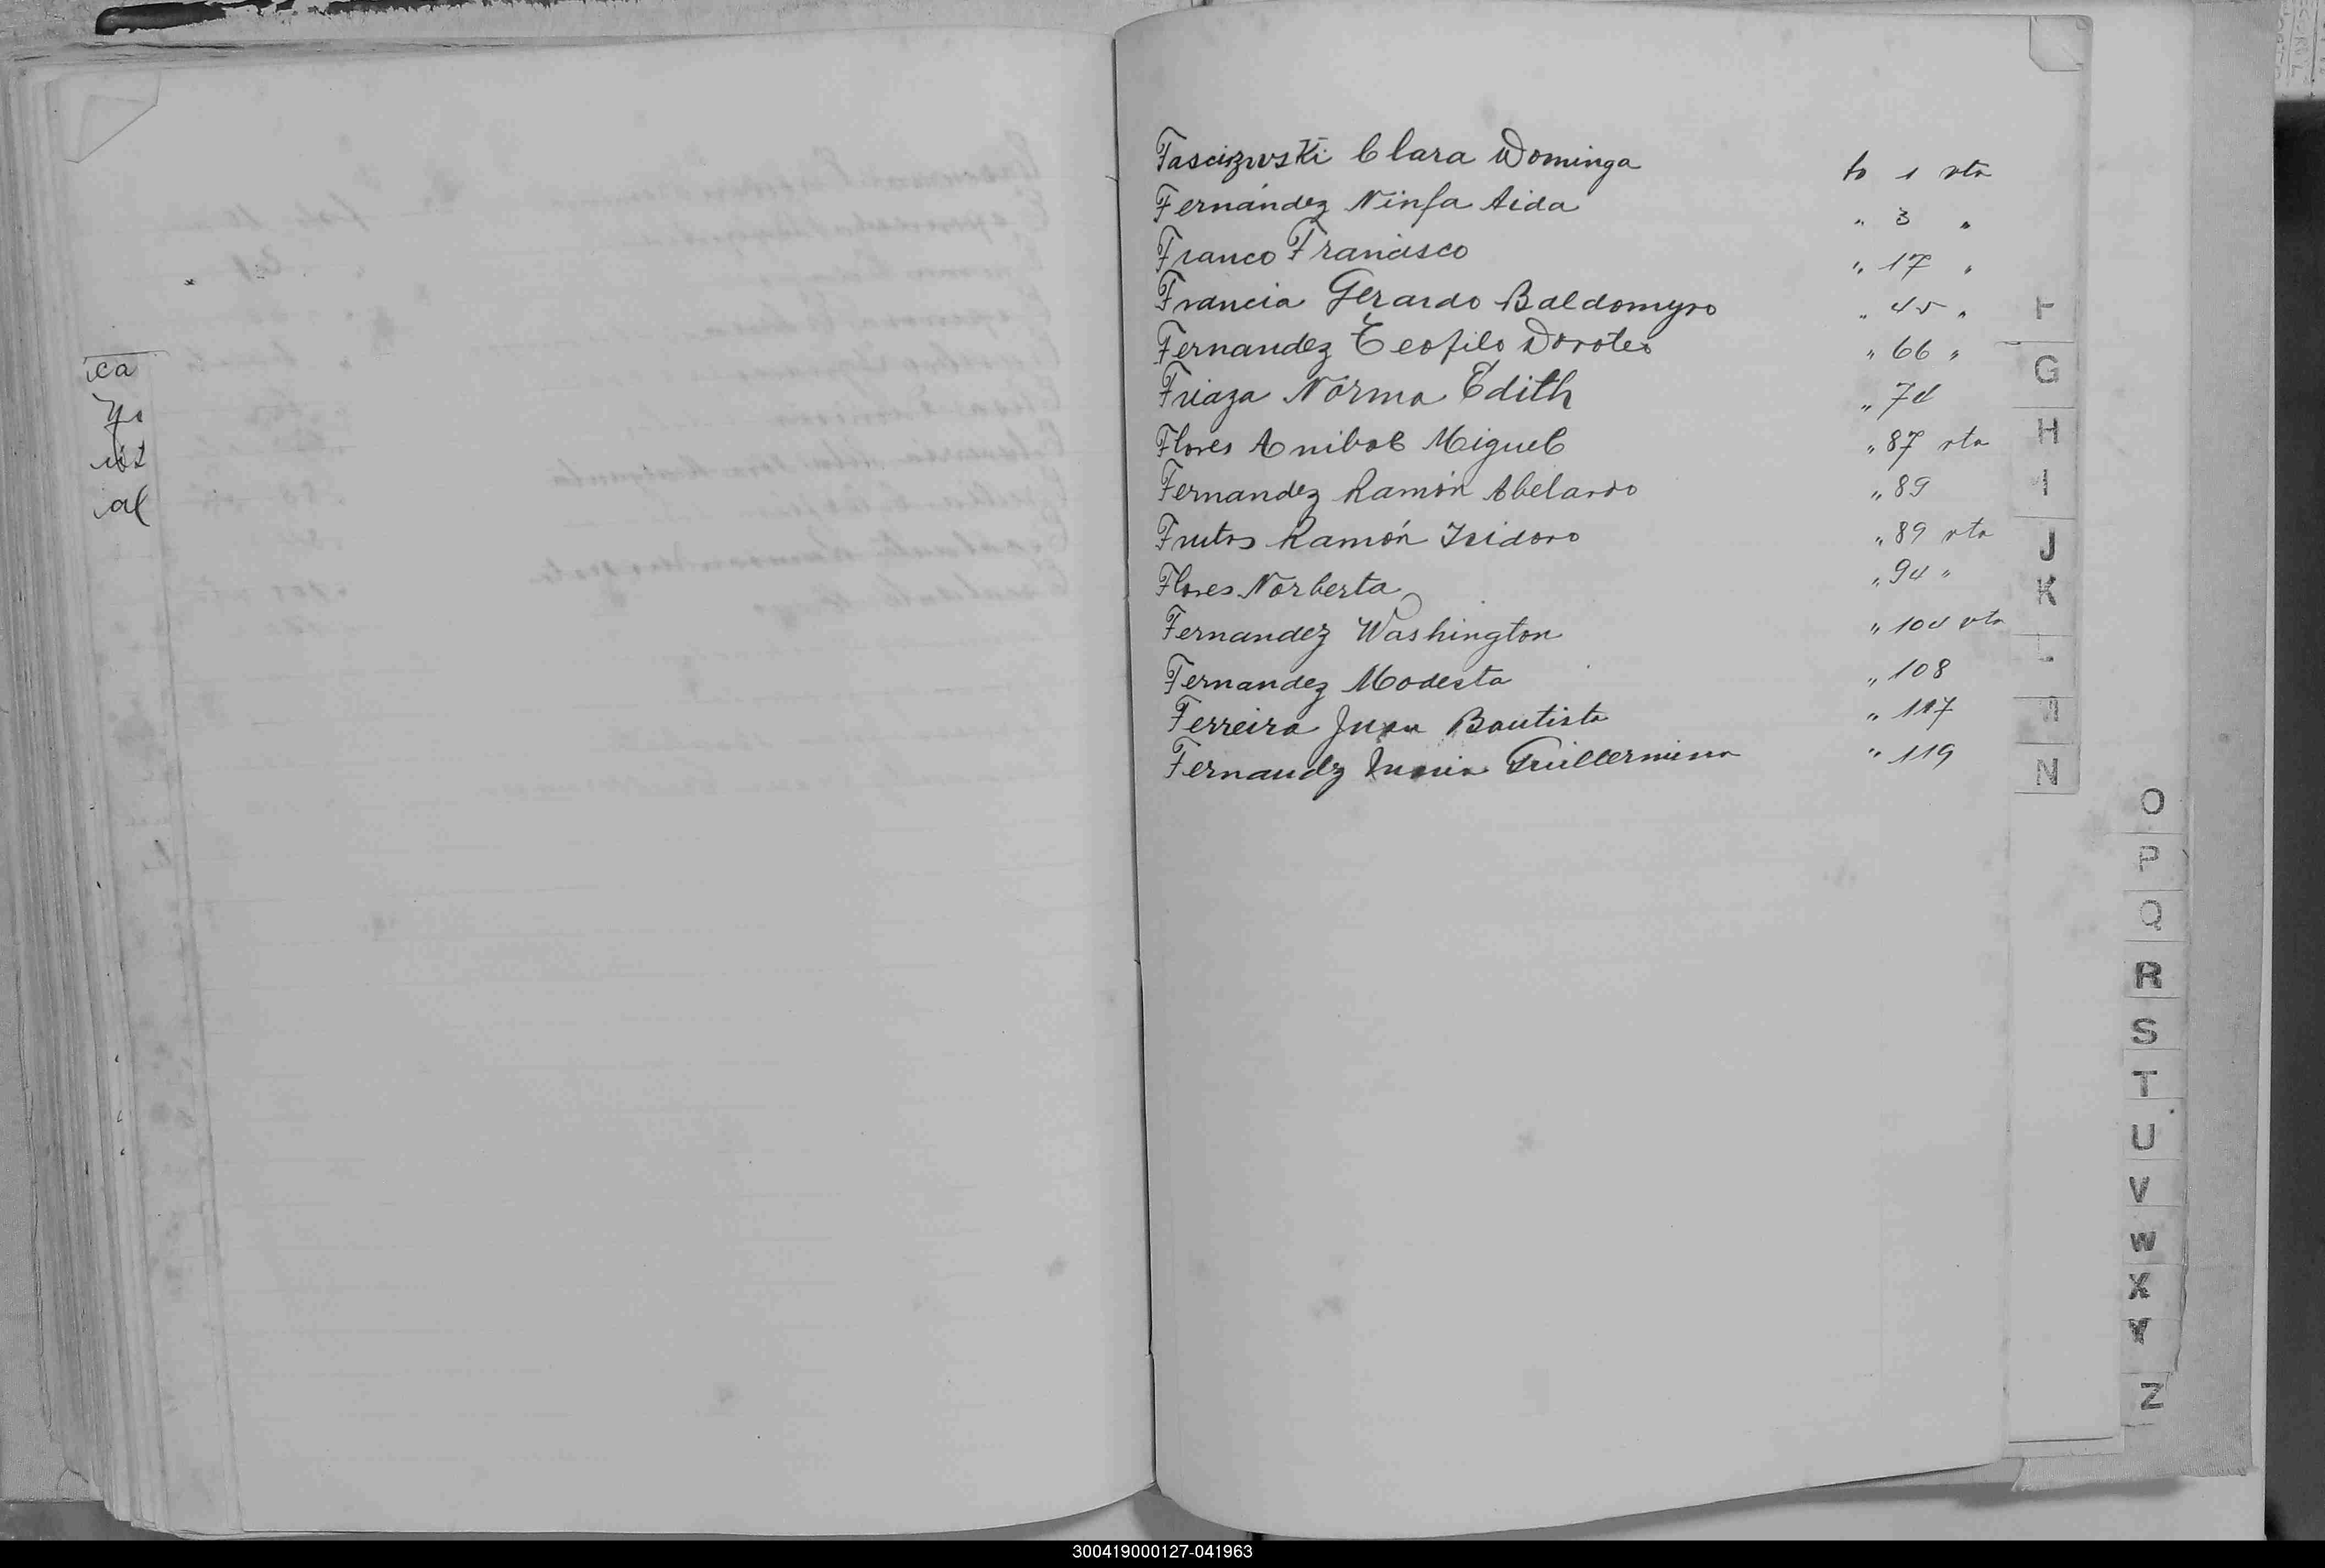 ica
yo
ist
al
Fascizwski Clara Dominga fo 1 vta
Fernández Ninfa Aida " 3 "
Franco Francisco " 17 "
Francia Gerardo Baldomyro " 45 "
Fernandez Teofilo Doroteo " 66 "
Friaza Norma Edith " 74
Flores Anibal Miguel " 87 vta
Fernandez Ramón Abelardo " 89
Frutos Ramón Isidoro " 89 vta
Flores Norberta " 94 "
Fernandez Washington " 104 vta
Fernandez Modesta " 108
Ferreira Juan Bautista " 117
Fernandz Guillermina " 119
F
G
H
I
J
K
L
N
O
P
Q
R
S
T
U
V
W
X
Y
Z
300419000127-041963